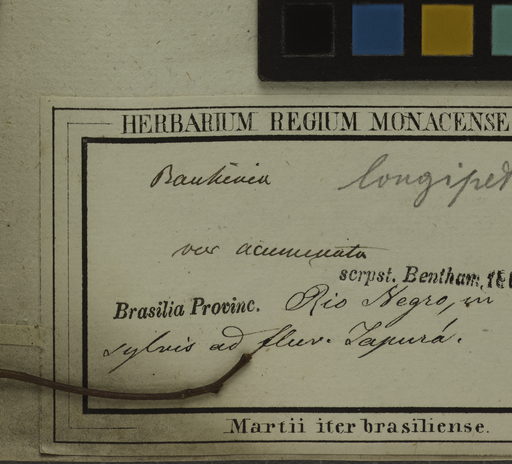 HERBARIUM REGIUM MONACENSE
Bauhinia longipet
var acuminata
scrpst. Bentham, 18
Brasilia Provinc. Rio Negro, in
sylvis ad fluv. Japurá.
Martii iter brasiliense.